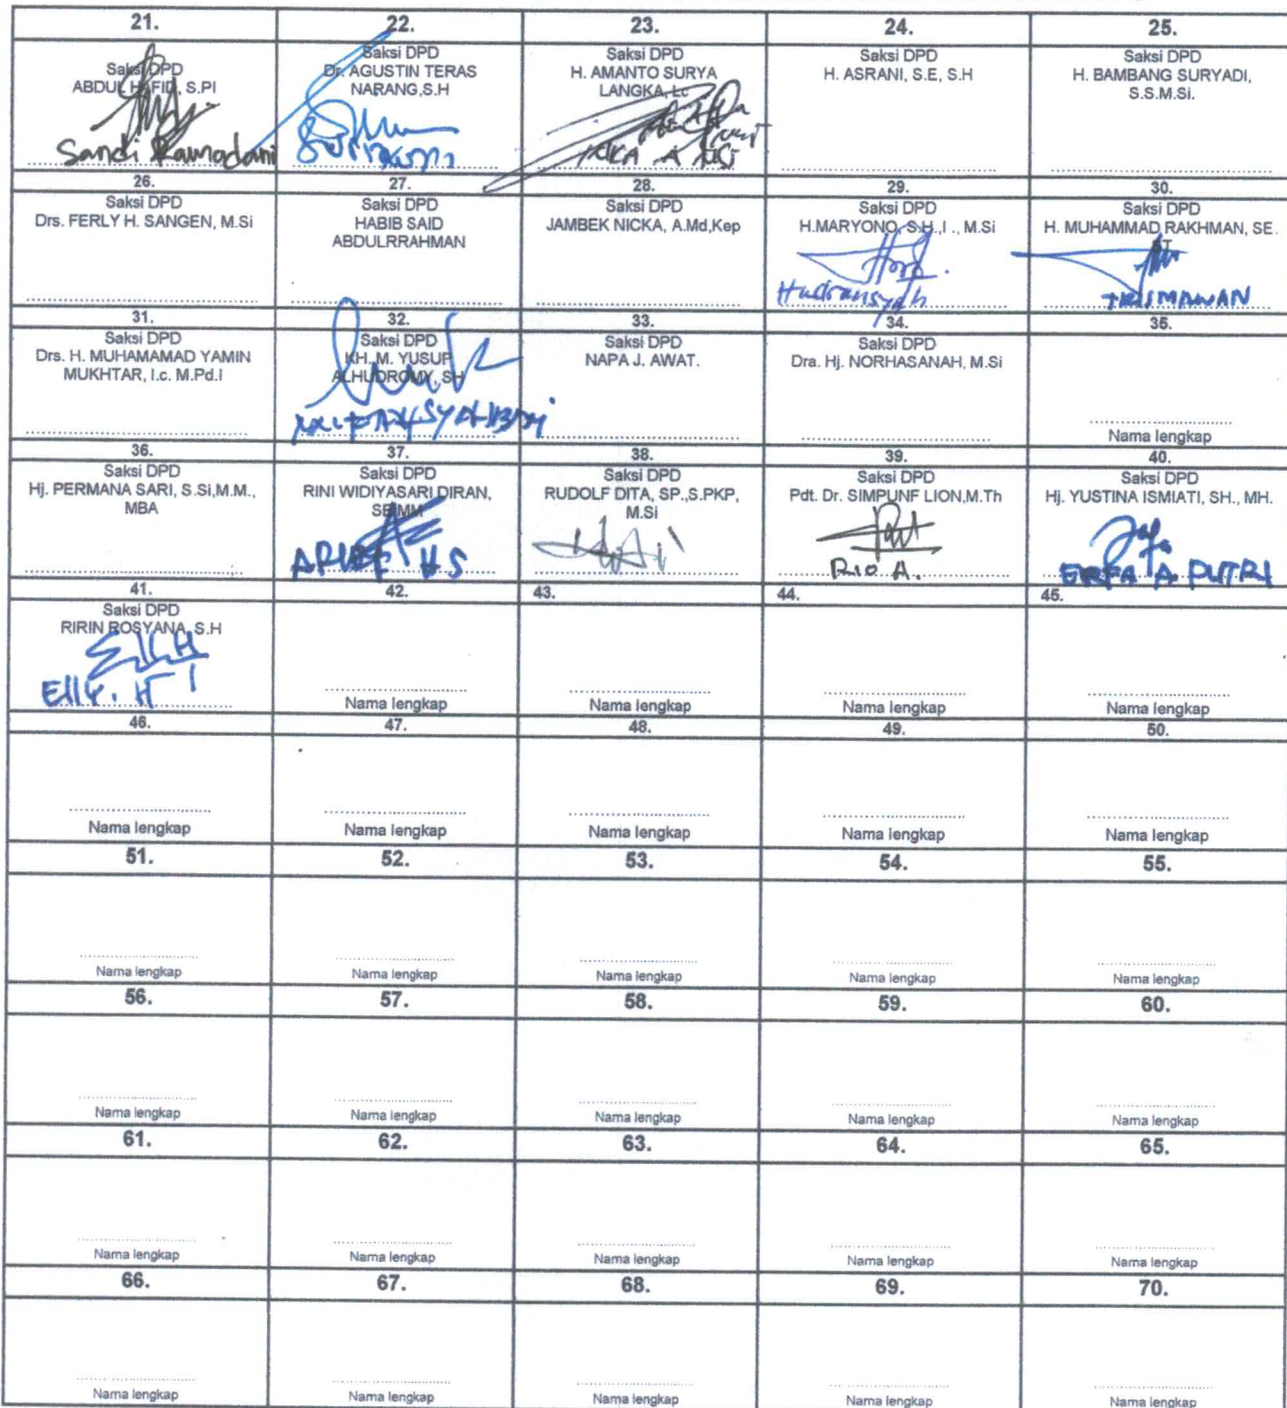 21. 22. 23. 24. 25.
Saksi DPD
ABDUL HAFID, S.PI
Sandi Ramadani
Saksi DPD
Dr. AGUSTIN TERAS
NARANG,S.H
Saksi DPD
H. AMANTO SURYA
LANGKA, Lc
Saksi DPD
H. ASRANI, S.E, S.H
Saksi DPD
H. BAMBANG SURYADI,
S.S.M.Si.
26. 27. 28. 29. 30.
Saksi DPD
Drs. FERLY H. SANGEN, M.Si
Saksi DPD
HABIB SAID
ABDULRRAHMAN
Saksi DPD
JAMBEK NICKA, A.Md,Kep
Saksi DPD
H.MARYONO, S.H.,I ., M.Si
Hudransyah
Saksi DPD
H. MUHAMMAD RAKHMAN, SE.
TRISMAWAN
31. 32. 33. 34. 35.
Saksi DPD
Drs. H. MUHAMAMAD YAMIN
MUKHTAR, I.c. M.Pd.I
Saksi DPD
KH. M. YUSUP
ALHUDROMY, SH
Saksi DPD
NAPA J. AWAT.
Saksi DPD
Dra. Hj. NORHASANAH, M.Si
Nama lengkap
36. 37. 38. 39. 40.
Saksi DPD
Hj. PERMANA SARI, S.Si,M.M.,
MBA
Saksi DPD
RINI WIDIYASARI DIRAN,
SE.MM
ARIEF HS
Saksi DPD
RUDOLF DITA, SP.,S.PKP,
M.Si
Saksi DPD
Pdt. Dr. SIMPUNF LION,M.Th
RIO A.
Saksi DPD
Hj. YUSTINA ISMIATI, SH., MH.
ERFA A. PUTRI
41. 42. 43. 44. 45.
Saksi DPD
RIRIN ROSYANA, S.H
Elly. H
Nama lengkap Nama lengkap Nama lengkap Nama lengkap
46. 47. 48. 49. 50.
Nama lengkap Nama lengkap Nama lengkap Nama lengkap Nama lengkap
51. 52. 53. 54. 55.
Nama lengkap Nama lengkap Nama lengkap Nama lengkap Nama lengkap
56. 57. 58. 59. 60.
Nama lengkap Nama lengkap Nama lengkap Nama lengkap Nama lengkap
61. 62. 63. 64. 65.
Nama lengkap Nama lengkap Nama lengkap Nama lengkap Nama lengkap
66. 67. 68. 69. 70.
Nama lengkap Nama lengkap Nama lengkap Nama lengkap Nama lengkap